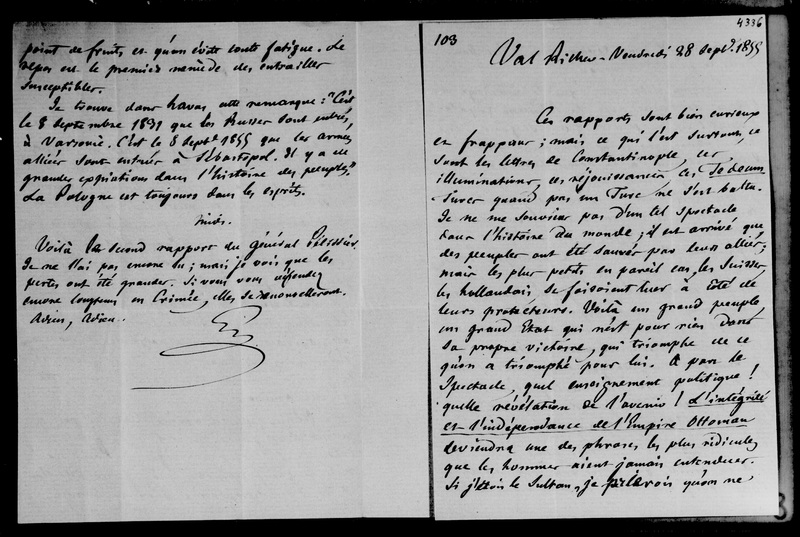 point de fruits et qu'on évite toute fatigue. Le
repos est le premier remède des entrailles
susceptibles.
Je trouve dans havas cette remarque : "C'est
le 8 septembre 1831 que les Russes sont entrés,
à Varsovie. C'est le 8 Septe 1855 que les armées
alliées sont entrées à Sébastopol. Il y a de
grandes expiations dans l'histoire des peuples."
La Pologne est toujours dans les esprits.
Midi.
Voilà le second rapport du général Pélissier.
Je ne l'ai pas encore lu ; mais je vois que les
pertes ont été grandes. Si vous vous défendez
encore longtems en Crimée, elles se renouvelleront.
Adieu, Adieu.
4336
103
Val Richer - Vendredi 28 Septe. 1855
Ces rapports sont bien curieux
et frappans ; mais ce qui l'est surtout, ce
sont les lettres de Constantinople, ces
illuminations, ces réjouissances, ces Te deum
Turcs quand pas un Turc ne s'est battu.
Je ne me souviens pas d'un tel spectacle
dans l'histoire du monde ; il est arrivé que
des peuples ont été sauvés par leurs alliés ;
mais les plus petits en pareil cas, les Suisses,
les hollandais se faisoient tuer à côté de
leurs protecteurs. Voilà un grand peuple
un grand Etat qui n'est pour rien dans
sa propre victoire, qui triomphe de ce
qu'on a triomphé pour lui. A part le
Spectacle, quel enseignement politique !
quelle révélation de l'avenir ! L'intégrité
et l'indépendance de l'Empire Ottoman
deviendra une des phrases les plus ridicules
que les hommes aient jamais entendues.
Si j'étois le Sultan, je qu'on ne